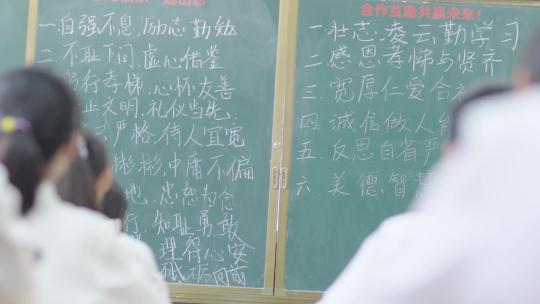 一.自强不息,励志勤勉
二.不耻下问,虚心借鉴
躬行孝悌,心怀友善
止文明,礼仪当先
严格,待人宜宽
彬彬,中庸不偏
地,忠恕为念
行.知耻勇敢
理得心安
砥砺向前
合作互助共赢未来!
一.壮志凌云勤学习
二.感恩孝悌与贤齐
三.宽厚仁爱合
四.诚信做人
五.反思自省严
六.美德智慧